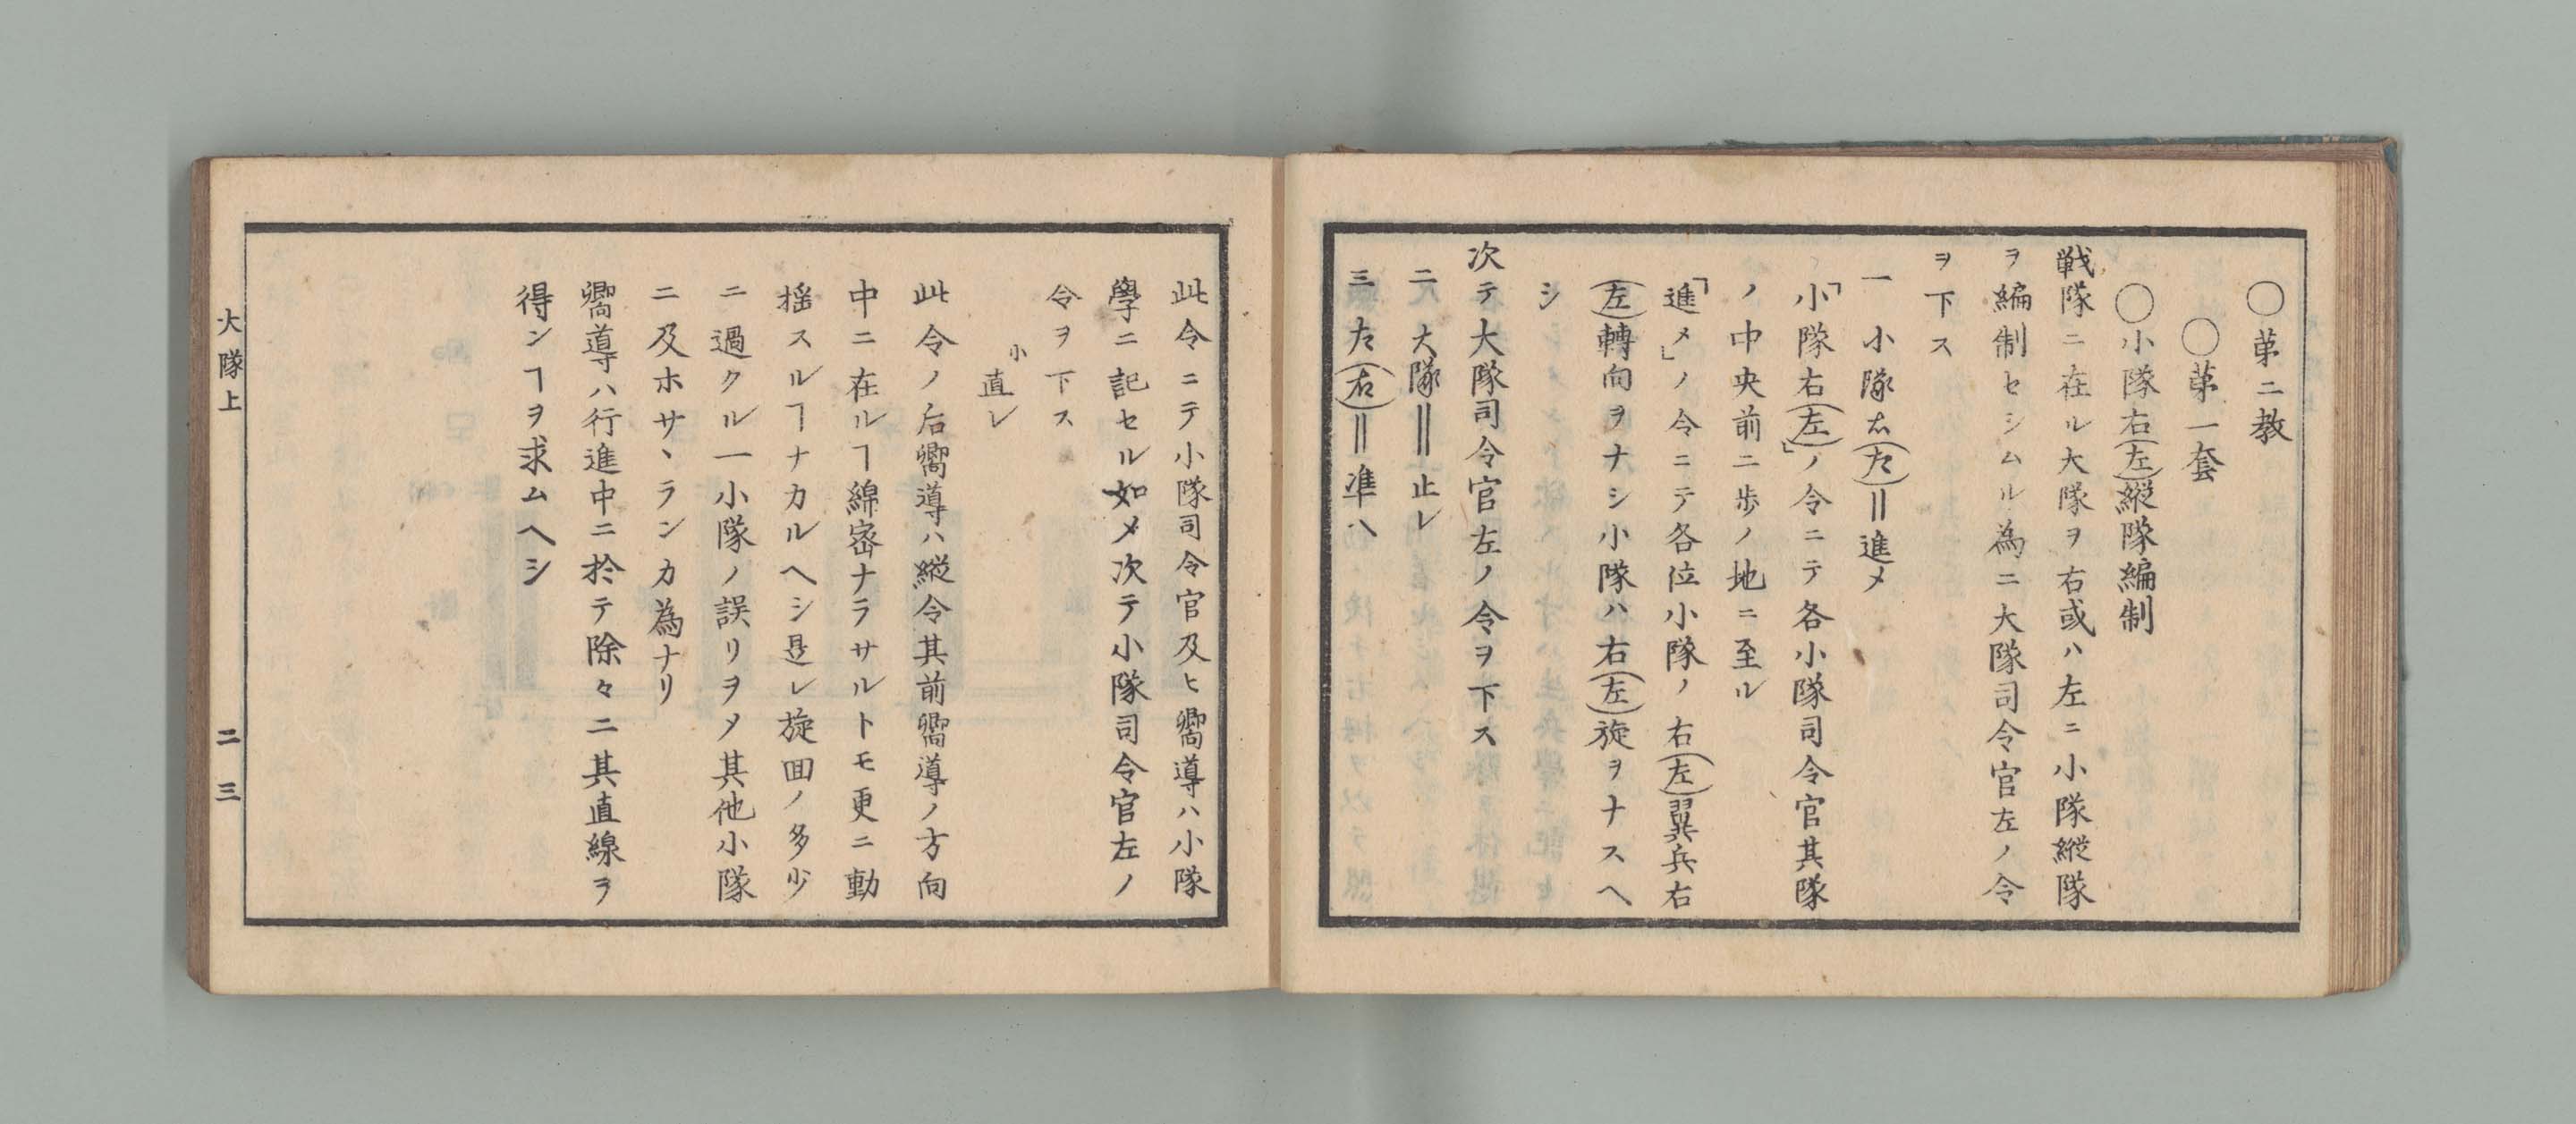 ○第二教
○第一套
○小隊右(左)縦隊編制
戦隊ニ在ル大隊ヲ右或ハ左ニ小隊縦隊
ヲ編制セシムル為ニ大隊司令官左ノ令
ヲ下ス
一 小隊右(左)‖進メ
「小隊右(左)」ノ令ニテ各小隊司令官其隊
ノ中央前ニ歩ノ地ニ至ル
「進メ」ノ令ニテ各位小隊ノ右(左)翼兵右
(左)轉向ヲナシ小隊ハ右(左)旋ヲナスヘ
シ
次テ大隊司令官左ノ令ヲ下ス
二 大隊‖止レ
三 左(右)‖準ヘ
此令ニテ小隊司令官及ヒ嚮導ハ小隊
學ニ記セル如メ次テ小隊司令官左ノ
令ヲ下ス
小直レ
此令ノ后嚮導ハ縦令其前嚮導ノ方向
中ニ在ルヿ綿密ナラサルトモ更ニ動
揺スルヿナカルヘシ是レ旋回ノ多少
ニ過クル一小隊ノ誤リヲメ其他小隊
ニ及ホサヽランカ為ナリ
嚮導ハ行進中ニ於テ除々ニ其直線ヲ
得ンヿヲ求ムヘシ
大隊上
二三